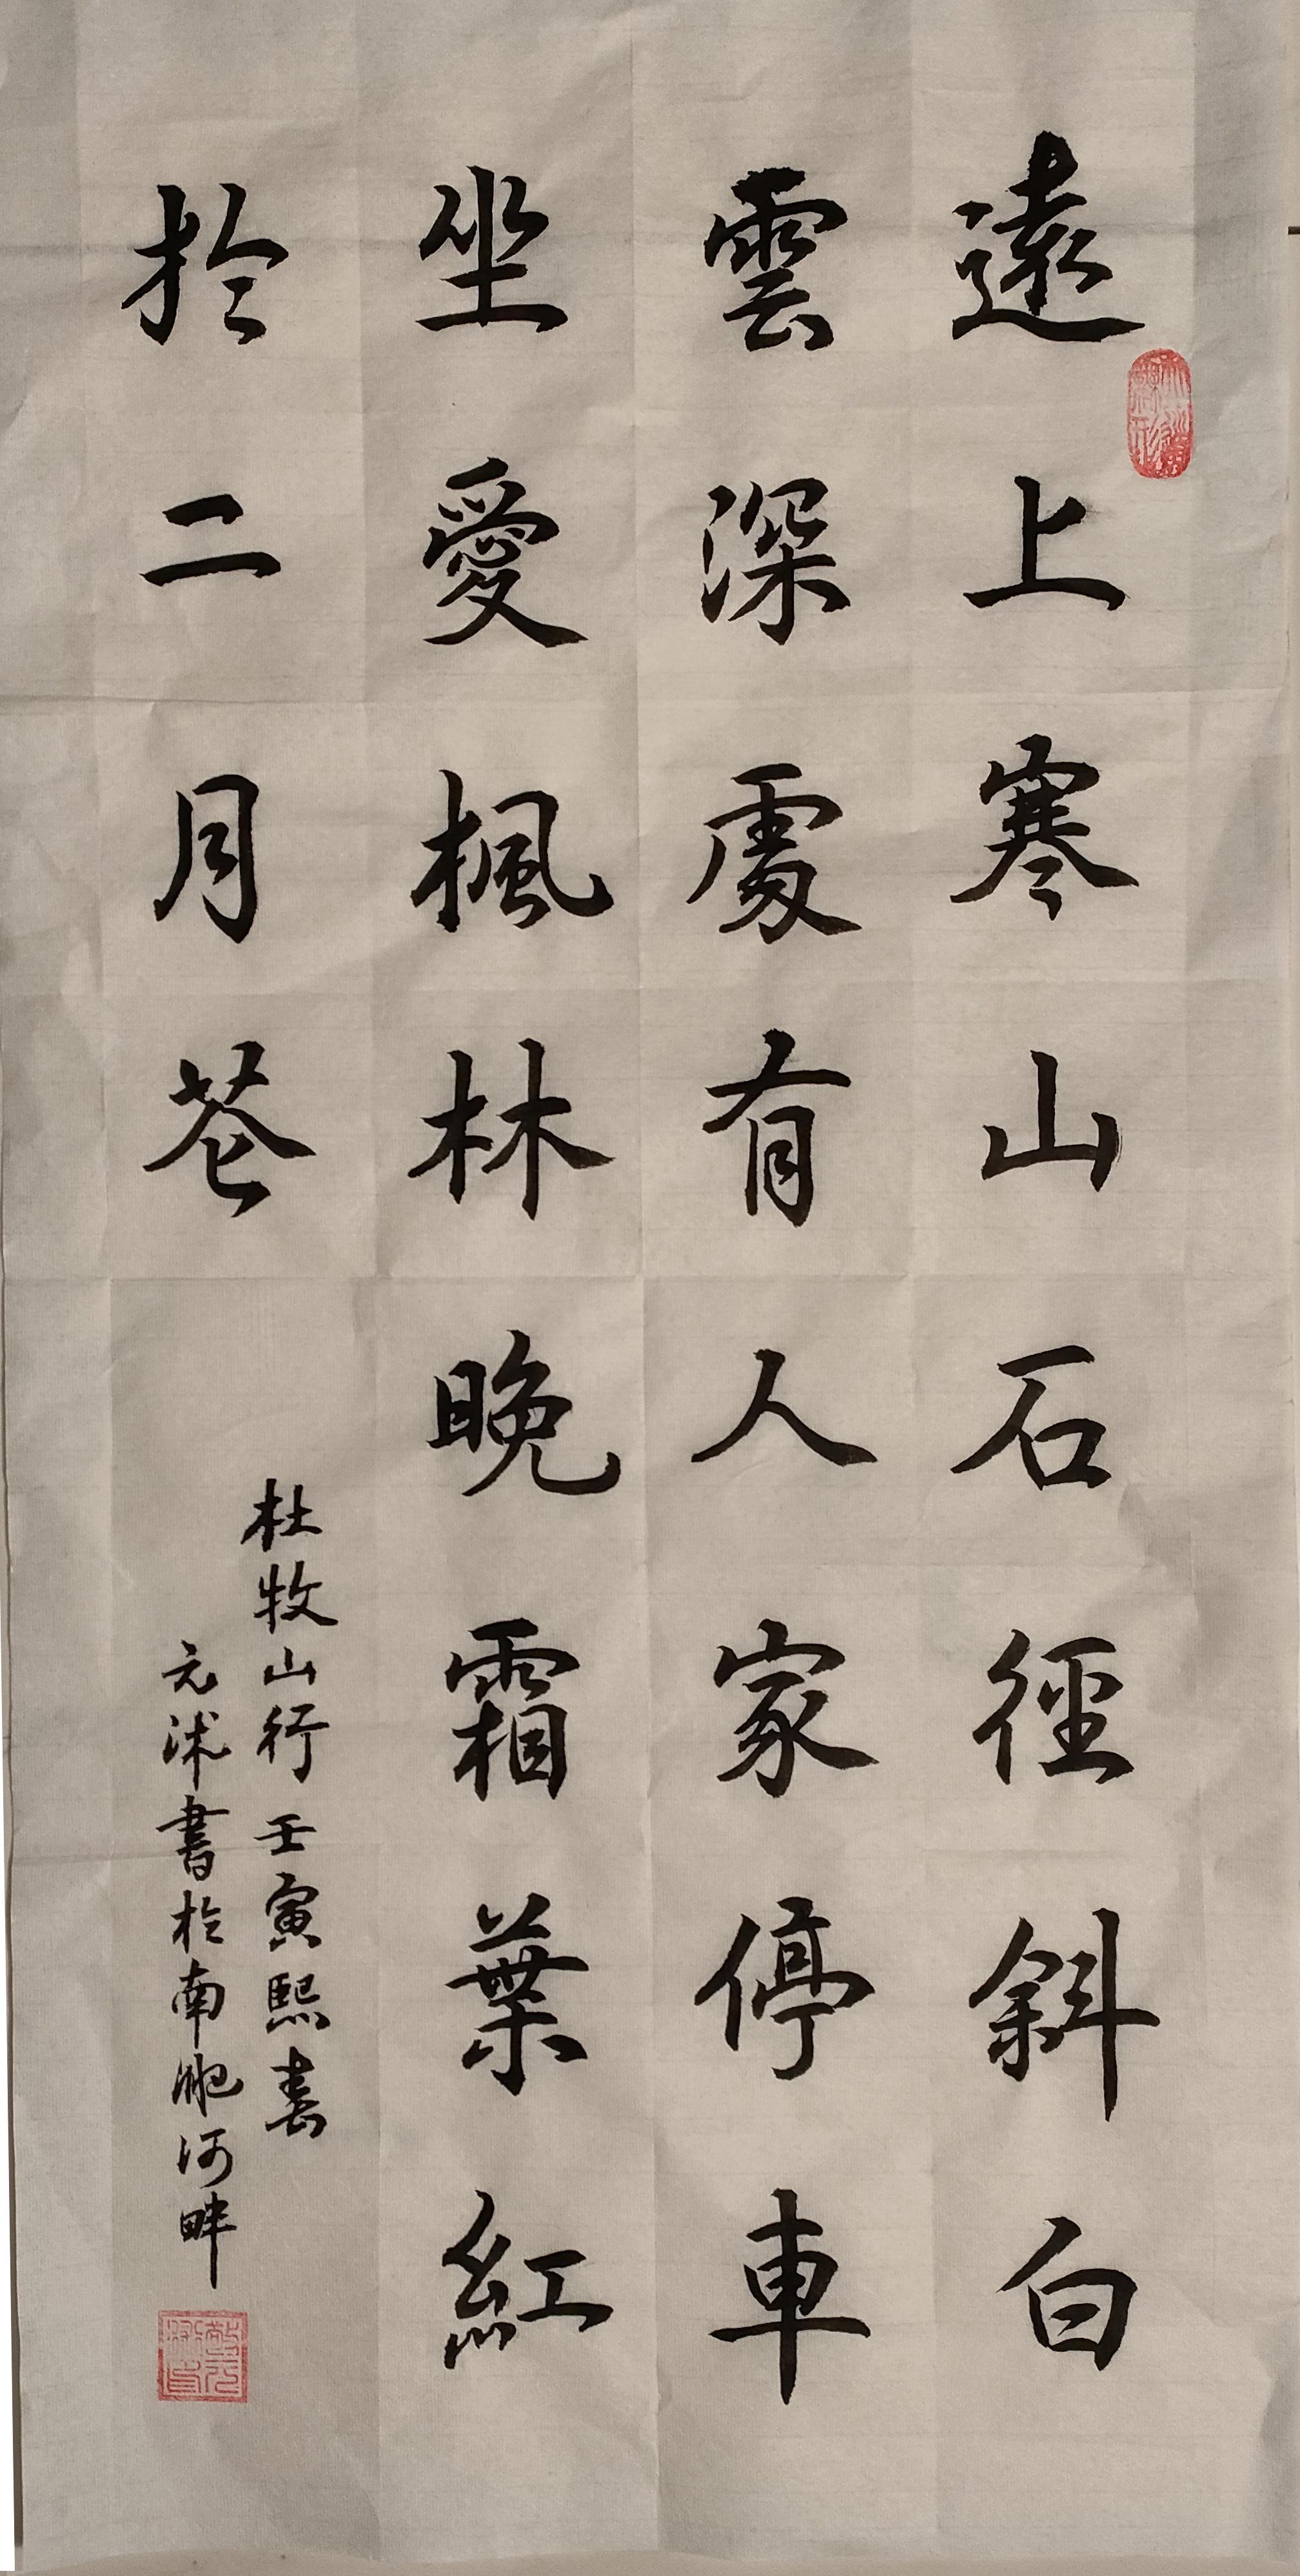 遠上寒山石徑斜白
雲深處有人家停車
坐愛楓林晚霜葉紅
於二月花
杜牧山行壬寅熙春
元沭書於南淝河畔